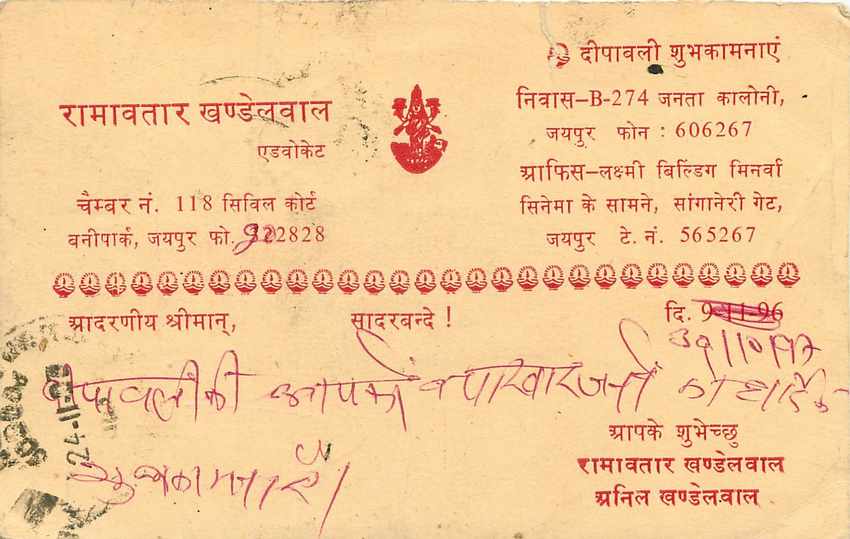 दीपावली शुभकामनाएं
रामावतार खण्डेलवाल
एडवोकेट
चैम्बर नं. 118 सिविल कोर्ट
बनीपार्क, जयपुर फो. 322828
निवास-B-274 जनता कालोनी,
जयपुर फोन : 606267
ऑफिस-लक्ष्मी बिल्डिंग मिनर्वा
सिनेमा के सामने, सांगानेरी गेट,
जयपुर टे. नं. 565267
आदरणीय श्रीमान्, सादरबन्दे ! दि. 9-11-96
30/10/97
दीपावली की आपको व परिवारजनों को हार्दिक
शुभकामनाऐं।
आपके शुभेच्छु
रामावतार खण्डेलवाल
अनिल खण्डेलवाल
24-11